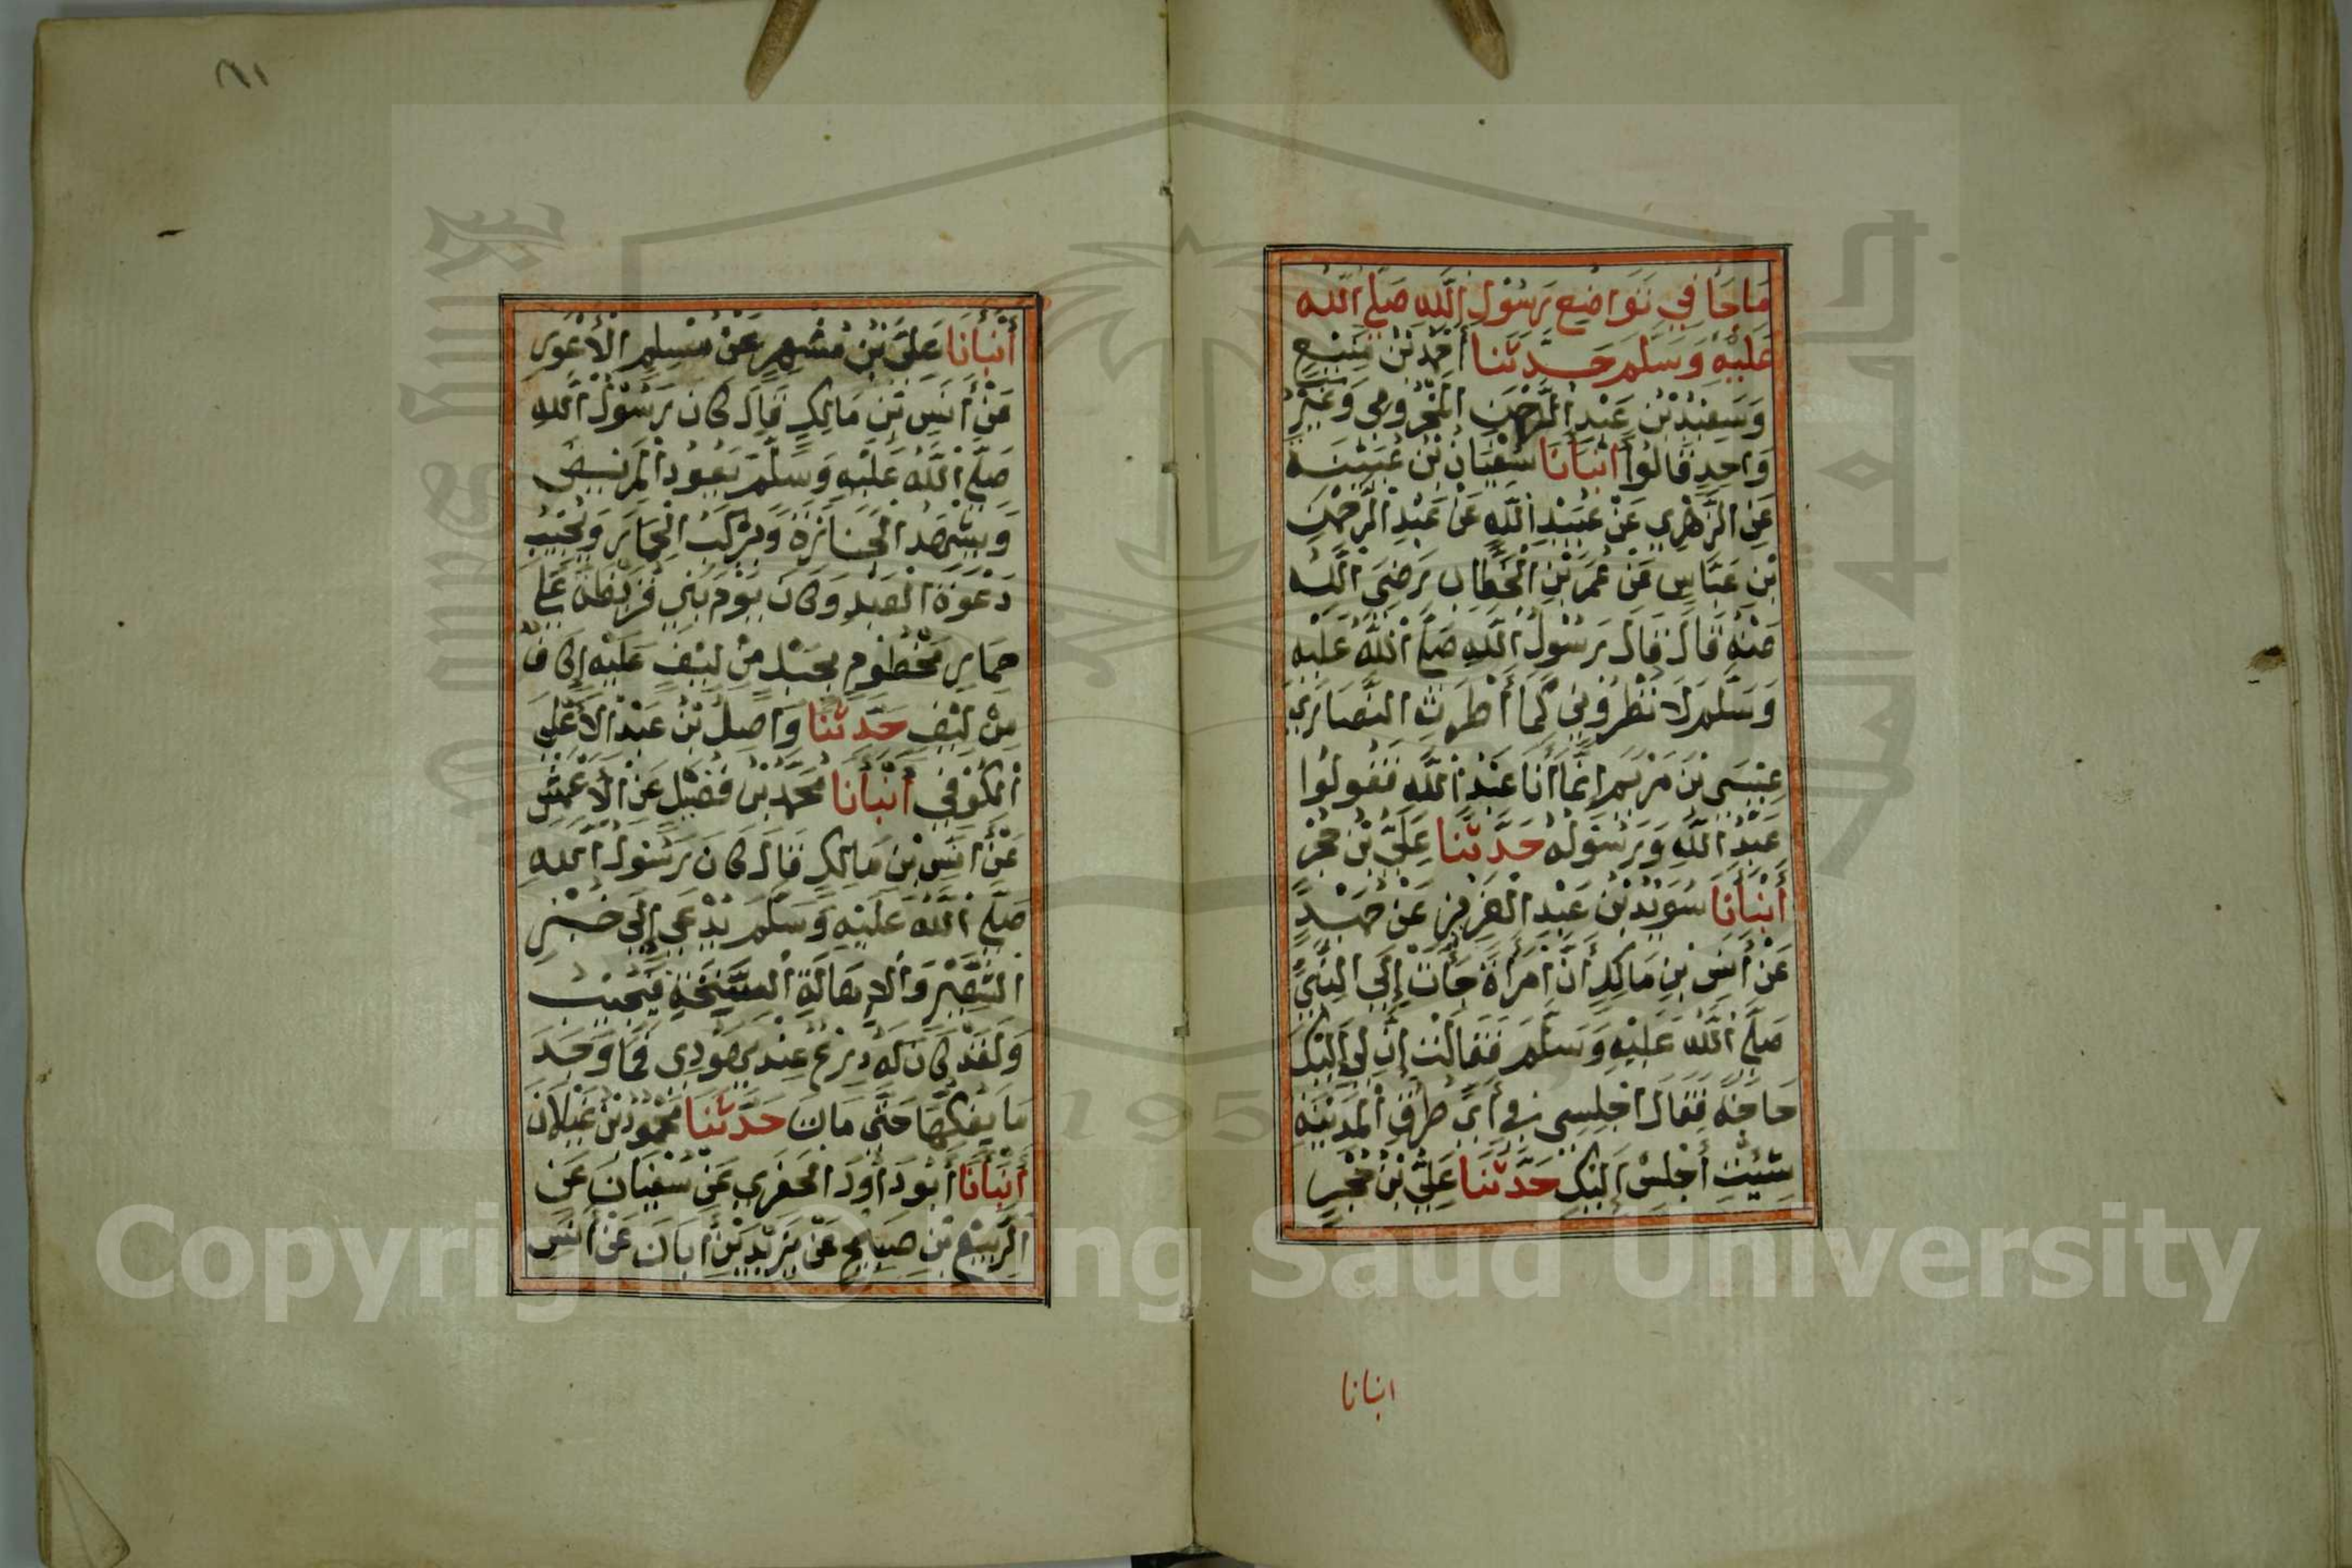 مَاجَا فِي تَوَاضُعِ رَسُوْلِ اللّٰهِ صَلَّى اللّٰهُ
عَلَيْهِ وَسَلَّمَ حَدَّثَنَا أَحْمَدُ بْنُ مَنِيْعٍ
وَسَعِيْدُ بْنُ عَبْدِ الرَّحْمٰنِ الْمَخْزُومِي وَغَيْرُ
وَاحِدٍ قَالُوْا أَنْبَأَنَا سُفْيَانُ بْنُ عُيَيْنَةَ
عَنِ الزُّهْرِي عَنْ عُبَيْدِ اللّٰهِ عَنْ عَبْدِ الرَّحْمٰنِ
بْنِ عَبَّاسٍ عَنْ عُمَرَ بْنِ الْخَطَّابِ رَضِيَ اللّٰهُ
عَنْهُ قَالَ قَالَ رَسُوْلُ اللّٰهِ صَلَّى اللّٰهُ عَلَيْهِ
وَسَلَّمَ لَا تُطْرُوْنِي كَمَا أَطْرَتِ النَّصَارَى
عِيْسَى بْنَ مَرْيَمَ إِنَّمَا أَنَا عَبْدُ اللّٰهِ فَقُولُوْا
عَبْدُ اللّٰهِ وَرَسُوْلُهُ حَدَّثَنَا عَلِيُّ بْنُ حُجْرٍ
أَنْبَأَنَا سُوَيْدُ بْنُ عَبْدِ الْعَزِيْزِ عَنْ حُمَيْدٍ
عَنْ أَنَسِ بْنِ مَالِكٍ أَنَّ امْرَأَةً جَأَتْ إِلَى النَّبِيِّ
صَلَّى اللّٰهُ عَلَيْهِ وَسَلَّمَ فَقَالَتْ إِنَّ لِي إِلَيْكَ
حَاجَةً فَقَالَ اجْلِسِي فِي أَيِّ طُرُقِ الْمَدِيْنَةِ
شِئْتِ أَجْلِسْ إِلَيْكِ حَدَّثَنَا عَلِيُّ بْنُ حُجْرٍ
انبانا
٨١
أَنْبَأَنَا عَلِيُّ بْنُ مُسْهِرٍ عَنْ مُسْلِمٍ الْأَعْوَرِ
عَنْ أَنَسِ بْنِ مَالِكٍ قَالَ كَانَ رَسُوْلُ اللّٰهِ
صَلَّى اللّٰهُ عَلَيْهِ وَسَلَّمَ يَعُوْدُ الْمَرِيْضَ
وَيَشْهَدُ الْجَنَازَةَ وَيَرْكَبُ الْحِمَارَ وَيُجِيْبُ
دَعْوَةَ الْعَبْدِ وَكَانَ يَوْمَ بَنِي قُرَيْظَةَ عَلَى
حِمَارٍ مَخْطُوْمٍ بِحَبْلٍ مِنْ لِيْفٍ عَلَيْهِ إِكَافٌ
مِنْ لِيْفٍ حَدَّثَنَا وَاصِلُ بْنُ عَبْدِ الْأَعْلَى
الْكُوْفِي أَنْبَأَنَا مُحَمَّدُ بْنُ فُضَيْلٍ عَنِ الْأَعْمَشِ
عَنْ أَنَسِ بْنِ مَالِكٍ قَالَ كَانَ رَسُوْلُ اللّٰهِ
صَلَّى اللّٰهُ عَلَيْهِ وَسَلَّمَ يُدْعَى إِلَى خُبْزِ
الشَّعِيْرِ وَالْإِهَالَةِ السَّنِخَةِ فَيُجِيْبُ
وَلَقَدْ كَانَ لَهُ دِرْعٌ عِنْدَ يَهُوْدِي فَمَا وَجَدَ
مَا يَفُكُّهَا حَتَّى مَاتَ حَدَّثَنَا مَحْمُوْدُ بْنُ غَيْلَانَ
أَنْبَأَنَا أَبُوْ دَاوُدَ الْحَفَرِي عَنْ سُفْيَانَ عَنِ
الرَّبِيْعِ بْنِ صَبِيْحٍ عَنْ يَزِيْدَ بْنِ أَبَانَ عَنْ أَنَسِ
Copyright © King Saud University